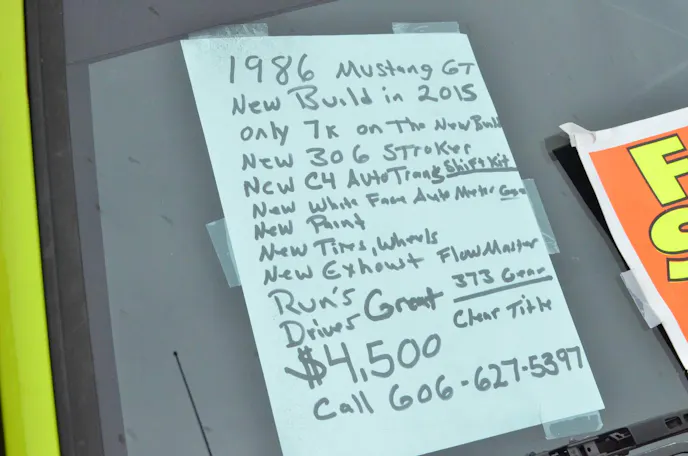 1986 Mustang GT
New Build in 2015
only 7K on The New Build
New 306 Stroker
New C4 AutoTrans Shift Kit
New White Face Auto Meter Gage
New Paint
New Tires, Wheels
New Exhowt FlowMaster
373 Gear
Run's
Drives Great
Clear Title
$4,500
Call 606-627-5397
F
S